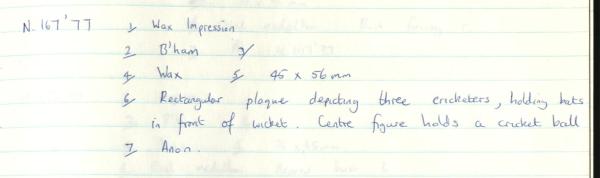 N. 167'77 1/ Wax Impression
2/ B'ham 3/
4/ Wax 5/ 45 x 56 mm
6/ Rectangular plaque depicting three cricketers, holding bats
in front of wicket. Centre figure holds a cricket ball
7/ Anon.